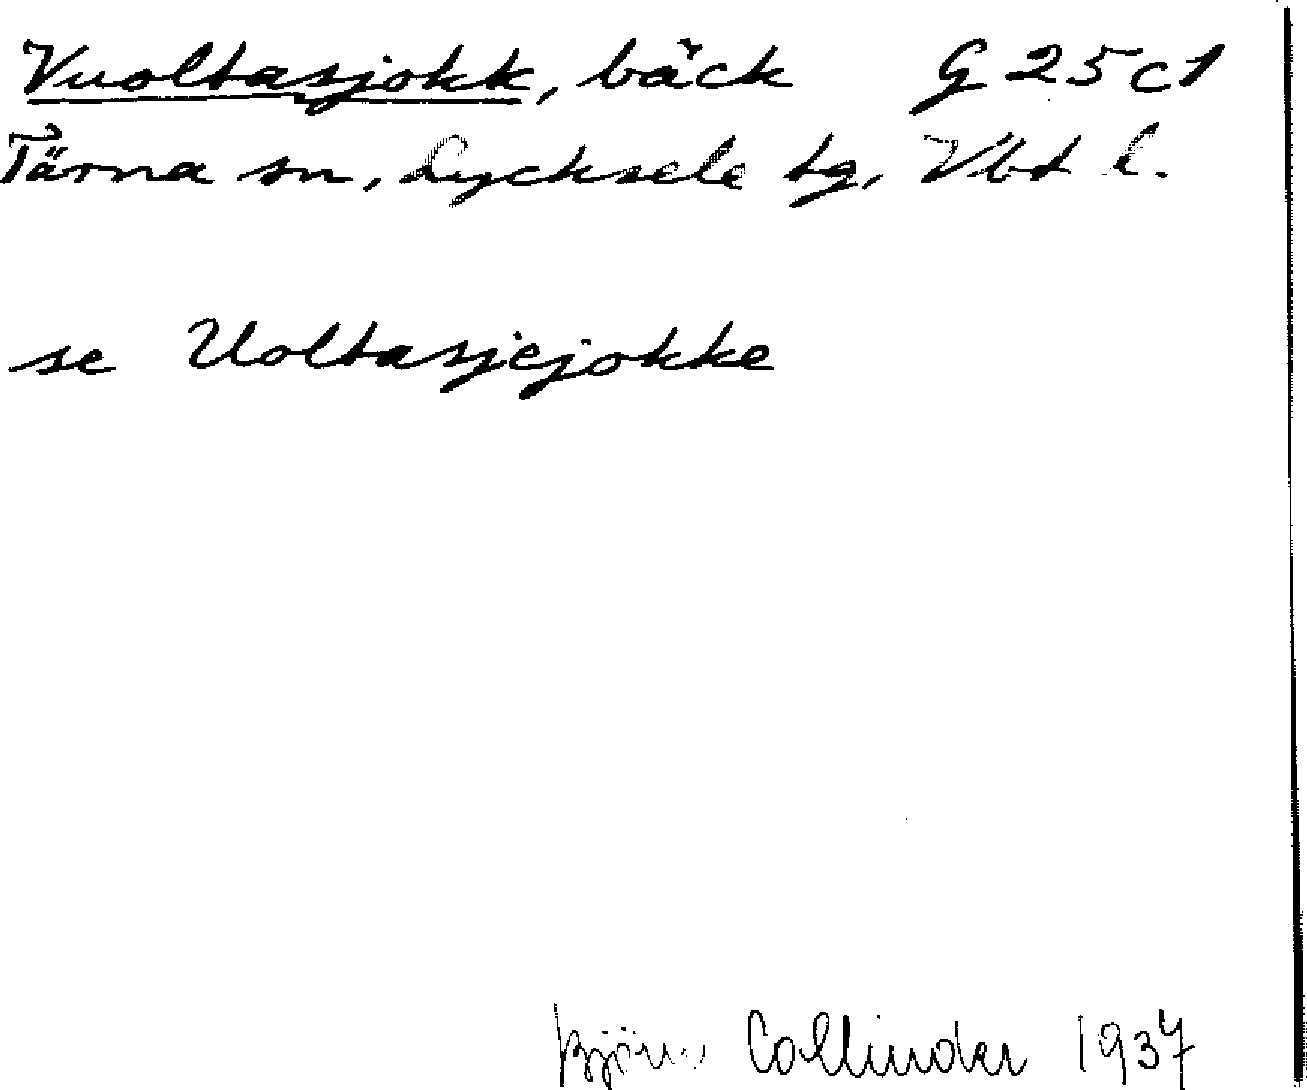 Vuoltasjokk, bäck G 25 c1
Tärna sn, Lycksele tg, Vbt l.
se Uoltasjejokke
Björn Collinder 1937